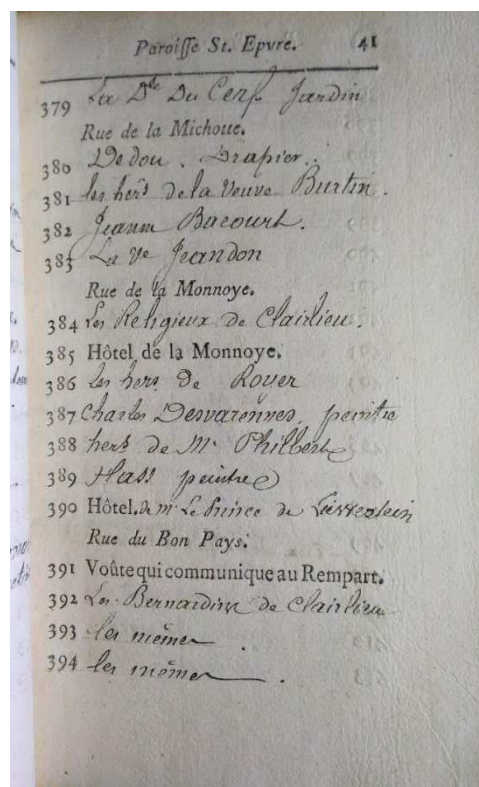 Paroisse St. Epvre. 41
379 La Dlle Du Cerf. Jardin
Rue de la Michotte.
380 Dedou. Drapier.
381 les hers de la Veuve Burtin.
382 Jeanne Bacourt.
383 La Ve Jeandon
Rue de la Monnoye.
384 Les Religieux de Clairlieu.
385 Hôtel de la Monnoye.
386 Les hers de Royer
387 Charles Desvarennes, peintre
388 hers de Mr Philbert
389 Hass peintre
390 Hôtel. de mr Le Prince de
Rue du Bon Pays.
391 Voûte qui communique au Rempart.
392 Les Bernardins de Clairlieu
393 les mêmes.
394 les mêmes.